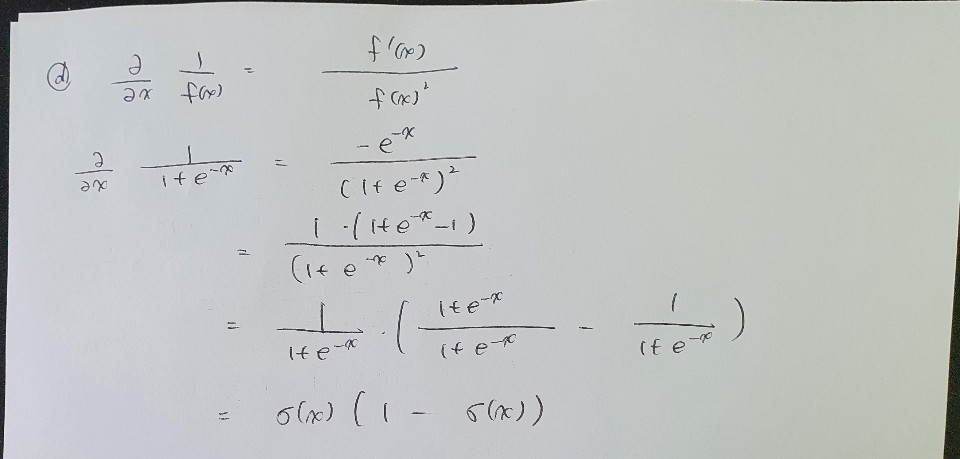 ⓓ ∂/∂x 1/f(x) = f'(x)/f(x)²
∂/∂x 1/(1+e^-x) = -e^-x/(1+e^-x)²
= 1·(1+e^-x-1)/(1+e^-x)²
= 1/(1+e^-x) · ( (1+e^-x)/(1+e^-x) - 1/(1+e^-x) )
= σ(x) ( 1 - σ(x))